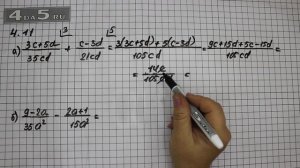 4DA5.RU
4. 11
а) 3c+5d/35cd + c-3d/21cd = 3(3c+5d)+5(c-3d)/105cd = 9c+15d+5c-15d/105cd =
= 14c/105c
б) 9-2a/35a² - 2a+1/15a² =